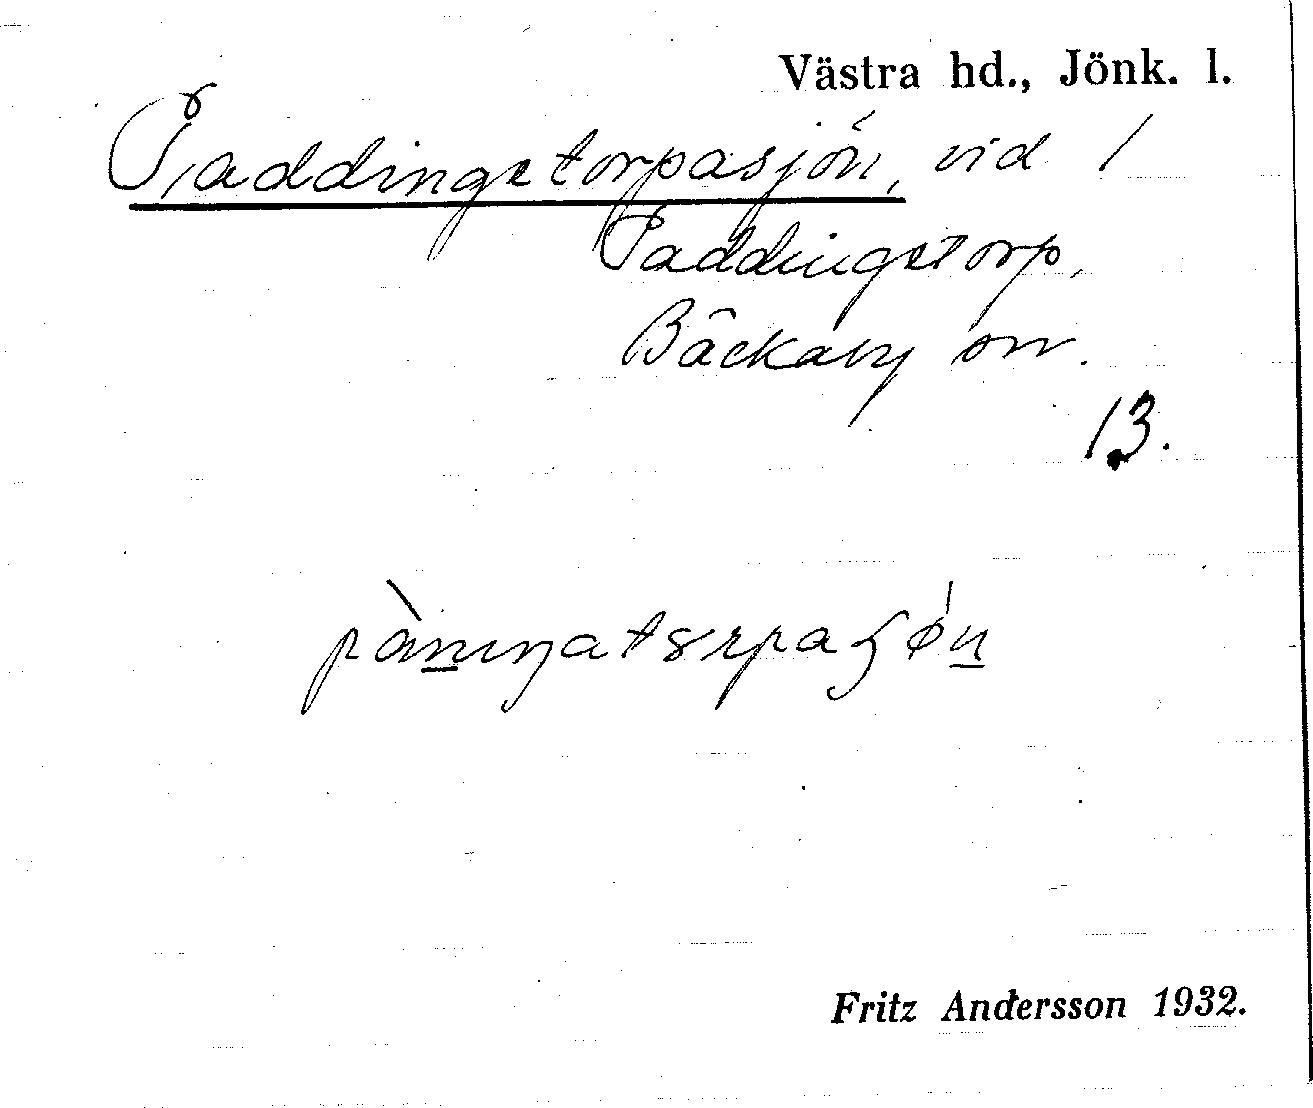 Västra hd., Jönk. l.
Paddingstorpasjön, vid 1
Paddingstorp,
Bäckaby sn.
13.
Fritz Andersson 1932.